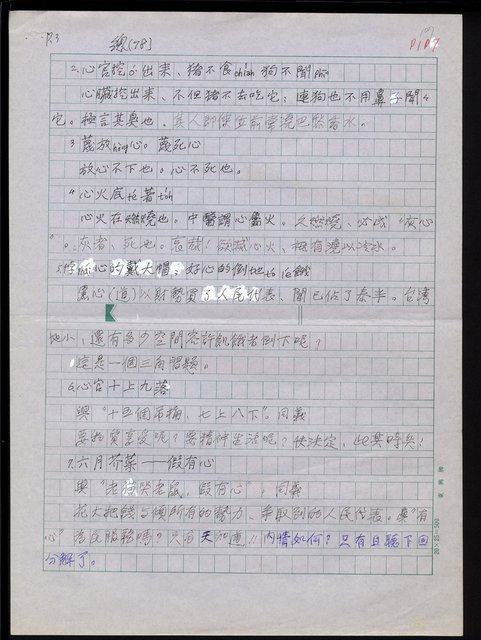 P.3 總(78)
P1
2.心官挖ó͘出來、豬不食chiah狗不聞phīⁿ
心臟挖出來、不但豬不去吃它;連狗也不用鼻子聞
它。極言其臭也、
3.蔑放hòng心。蔑死心
放心不下也。心不死也。
4.心火底teh著to̍h
心火在燃燒也。中醫謂心屬火。久燃燒、必成"灰心"
"。灰者、死也。哀哉!欲滅心火、極有澆以冷水。
心的戴大帽;好心的倒地teh餓
黑心(道)以財勢買了人民代表、聞已佔了泰半。台灣
地小,還有多少空間容許飢餓者倒下呢?
這是一個三角問題。
6.心官十上九落
與"十五個吊桶、七上八下"。同義
要物質享受呢?要精神生活呢?快決定、此其時矣!
7.六月芥菜——假有心
與"老貓哭老鼠、假有心"。同義
花大把錢与傾所有的勢力、爭取到的人民代表。真"有
心"為民服務嗎?只有天知道!!內情如何?只有且聽下回
分解了。
20×25=500